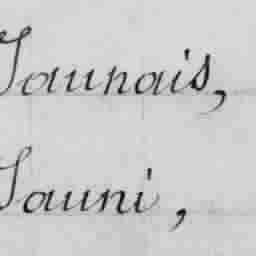 Jaunais,
Jauni,